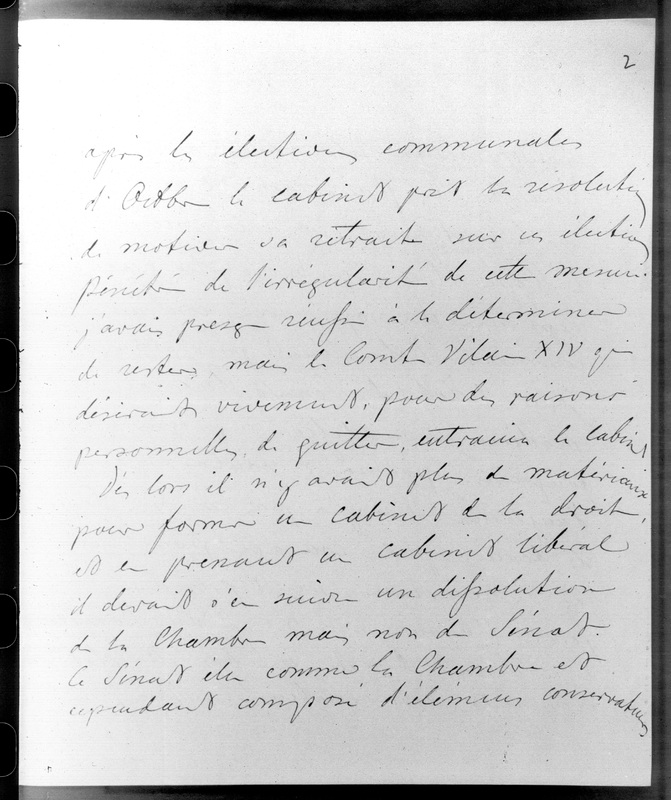 2
après les élections communales
d'Octbre le cabinet prit la résolution
de motiver sa retraite sur ces élections
pénétré de l'irrégularité de cette mesure
j'avais presq reussi à le déterminer
de rester, mais le Comte Vilain XIV qui
désirait vivement, pour des raisons
personnelles, de quitter, entraina le cabinet
Dès lors il n'y avait plus de matériaux
pour former un cabinet de la droite,
et en prenant un cabinet libéral
il devait s'en suivre un dissolution
de la Chambre mais non du Sénat.
Ce Sénat élu comme la Chambre et
cependant composé d'élémens conservateurs